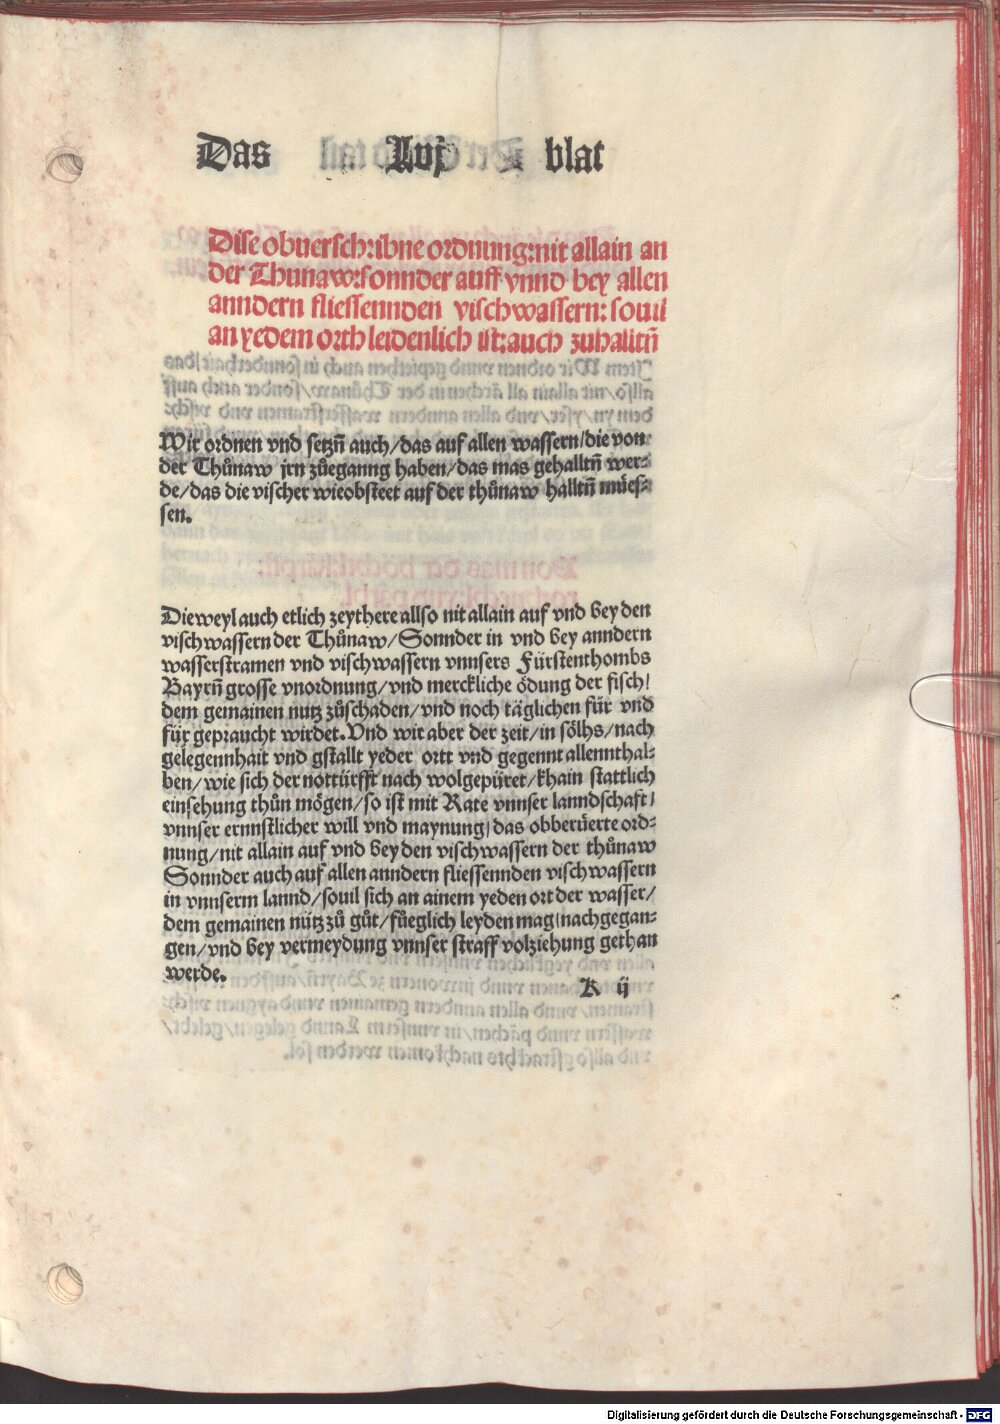 Das Lvj blat
Dise obuerschribne ordnung: nit allain an
der Thunaw: sonnder auff vnnd bey allen
anndern fliessennden vischwassern: souil
an yedem orth leidenlich ist: auch zuhalltn̄
Wir ordnen vnd setzn̄ auch/das auf allen wassern/die von
der Thůnaw jrn zůeganng haben/das mas gehalltn̄ wer⸗
de/das die vischer wieobsteet auf der thůnaw halltn̄ můes⸗
sen.
Dieweyl auch etlich zeythere allso nit allain auf vnd bey den
vischwassern der Thůnaw/Sonnder in vnd bey anndern
wasserstramen vnd vischwassern vnnsers Fürstenthombs
Bayrn̄ grosse vnordnung/vnd merckliche ödung der fisch/
dem gemainen nutz zůschaden/vnd noch täglichen für vnd
für gepraucht wirdet. Vnd wir aber der zeit/in sölhs/nach
gelegennhait vnd gstallt yeder ortt vnd gegennt allennthal⸗
ben/wie sich der notturfft nach wolgepüret/khain stattlich
einsehung thůn mögen/so ist mit Rate vnnser lanndschaft/
vnnser ernnstlicher will vnd maynung/das obberüerte ord⸗
nung/nit allain auf vnd bey den vischwassern der thůnaw
Sonnder auch auf allen anndern fliessennden vischwassern
in vnnserm lannd/souil sich an ainem yeden ort der wasser/
dem gemainen nutz zů gůt/füeglich leyden mag/nachgegan⸗
gen/vnd bey vermeydung vnnser straff volziehung gethan
werde.
K ij
Digitalisierung gefördert durch die Deutsche Forschungsgemeinschaft - DFG